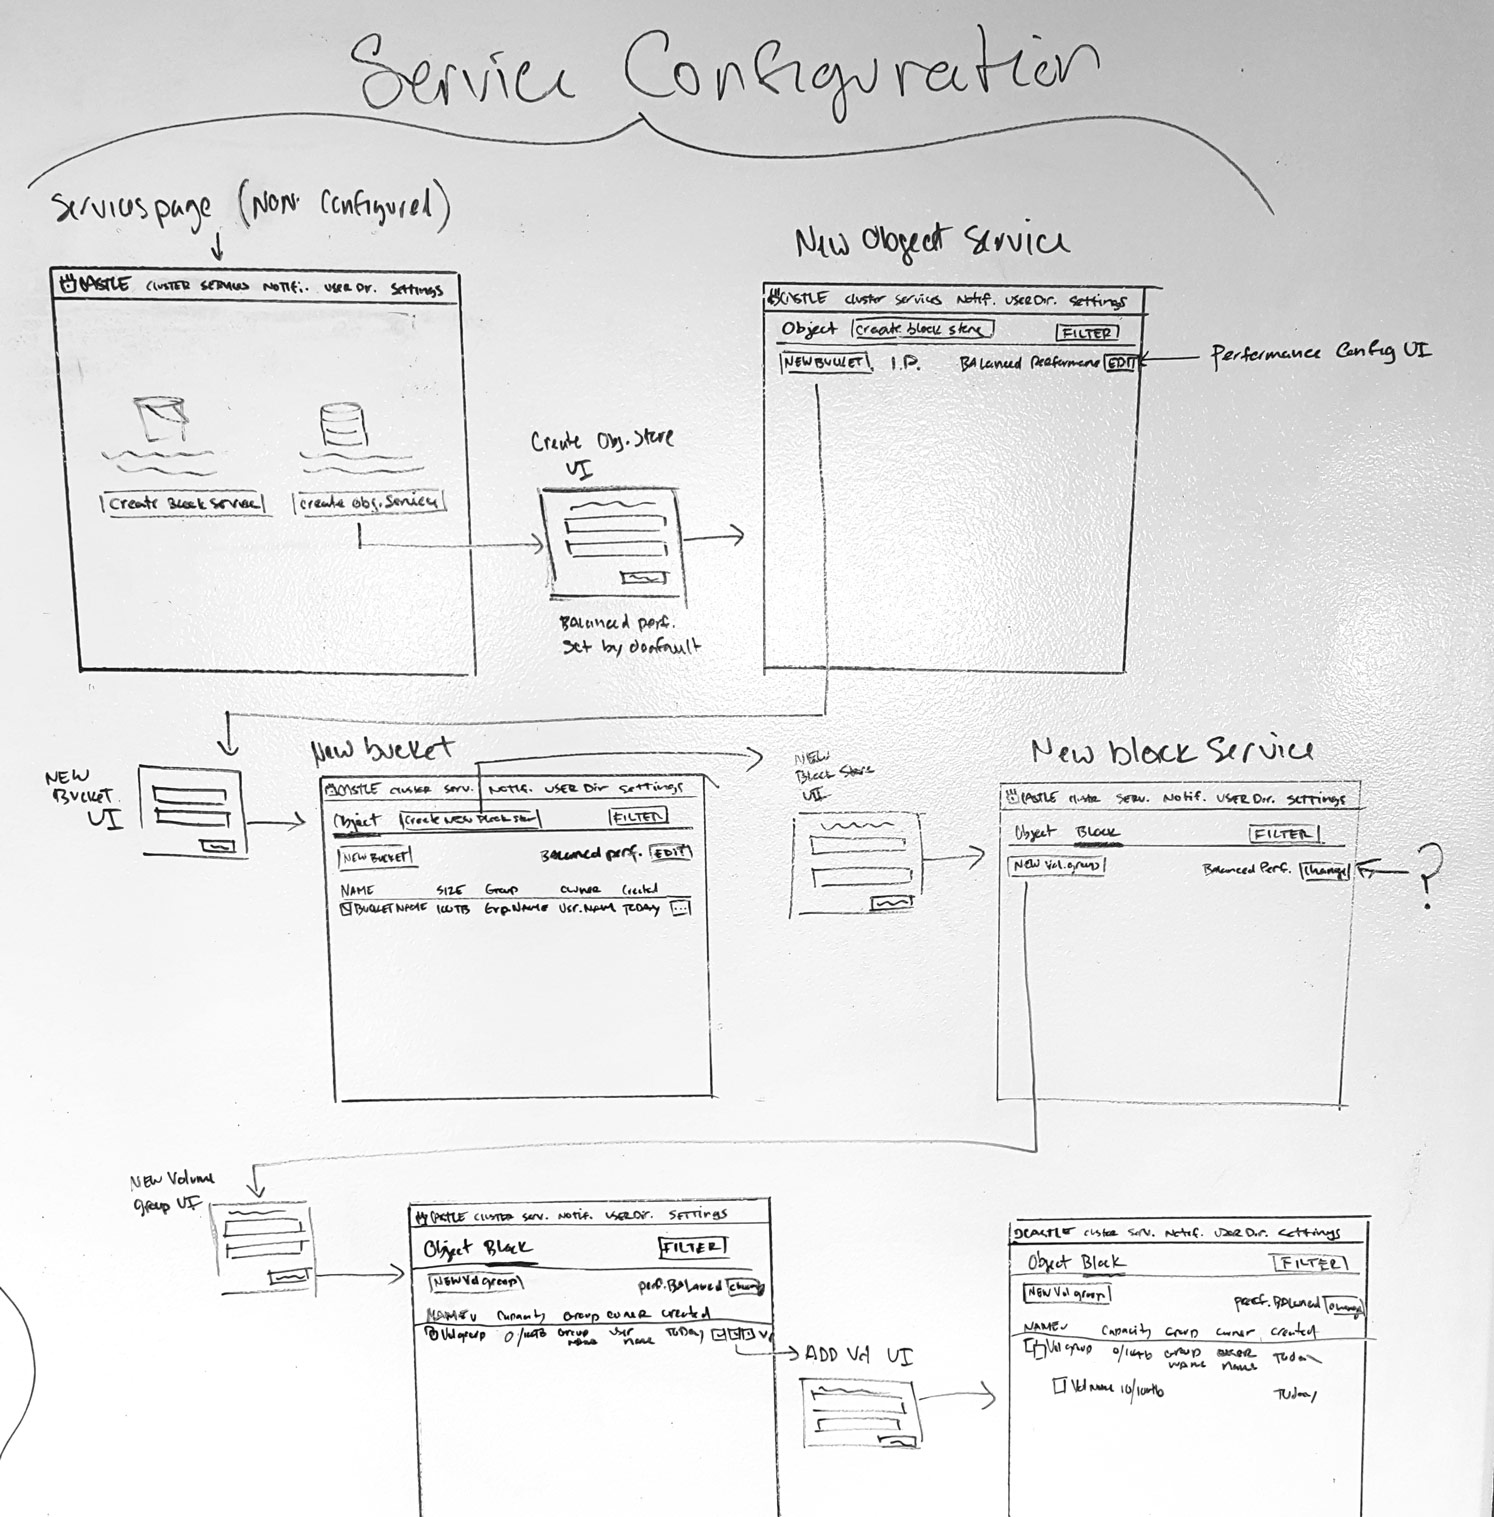 Service Configuration
Services page (Non Configured)
CASTLE CLUSTER SERVICES NOTIFI. USER DIR. Settings
Create Block Service
Create Obj. Service
Create Obj. Store
UI
Balanced perf.
Set by defautl
New Object Service
CASTLE Cluster Services Notif. USER Dir. Settings
Object Create block store FILTER
NEW BUCKET I.P. BALanced Performance EDIT
Performance Config UI
NEW
BUCKET
UI
New bucket
CASTLE CLUSTER SERV. NOTIF. USER Dir Settings
Object Create New Block Stor FILTER
NEW BUCKET Balanced perf. EDIT
NAME SIZE Group OWNER Created
BUCKET NAME 100TB Grp.NAME USR.NAME TODAY ...
NEW
Block Store
UI
New block Service
CASTLE CLUSTER SERV. Notif. USER Dir. Settings
Object BLOCK FILTER
New Vol. group Balanced Perf. Change
?
NEW Volume
group UI
CASTLE CLUSTER SERV. NOTIF. USER DIR. SETTINGS
Object Block FILTER
NEW Vol group perf. BALanced
NAME Capacity Group OWNER Created
Vol group Group NAME USR NAME TODAY
ADD Vol UI
CASTLE CLUSTER SERV. Notif. USER Dir. Settings
Object Block FILTER
NEW Vol group perf. BALanced Change
NAME Capacity Group Owner Created
Vol group Group NAME NAME Today
Vol name Today